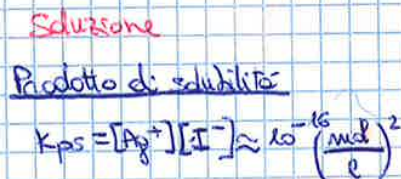 Soluzione
Prodotto di solubilità
Kps = [Ag⁺][I⁻] ≈ 10⁻¹⁶ (mol/l)²